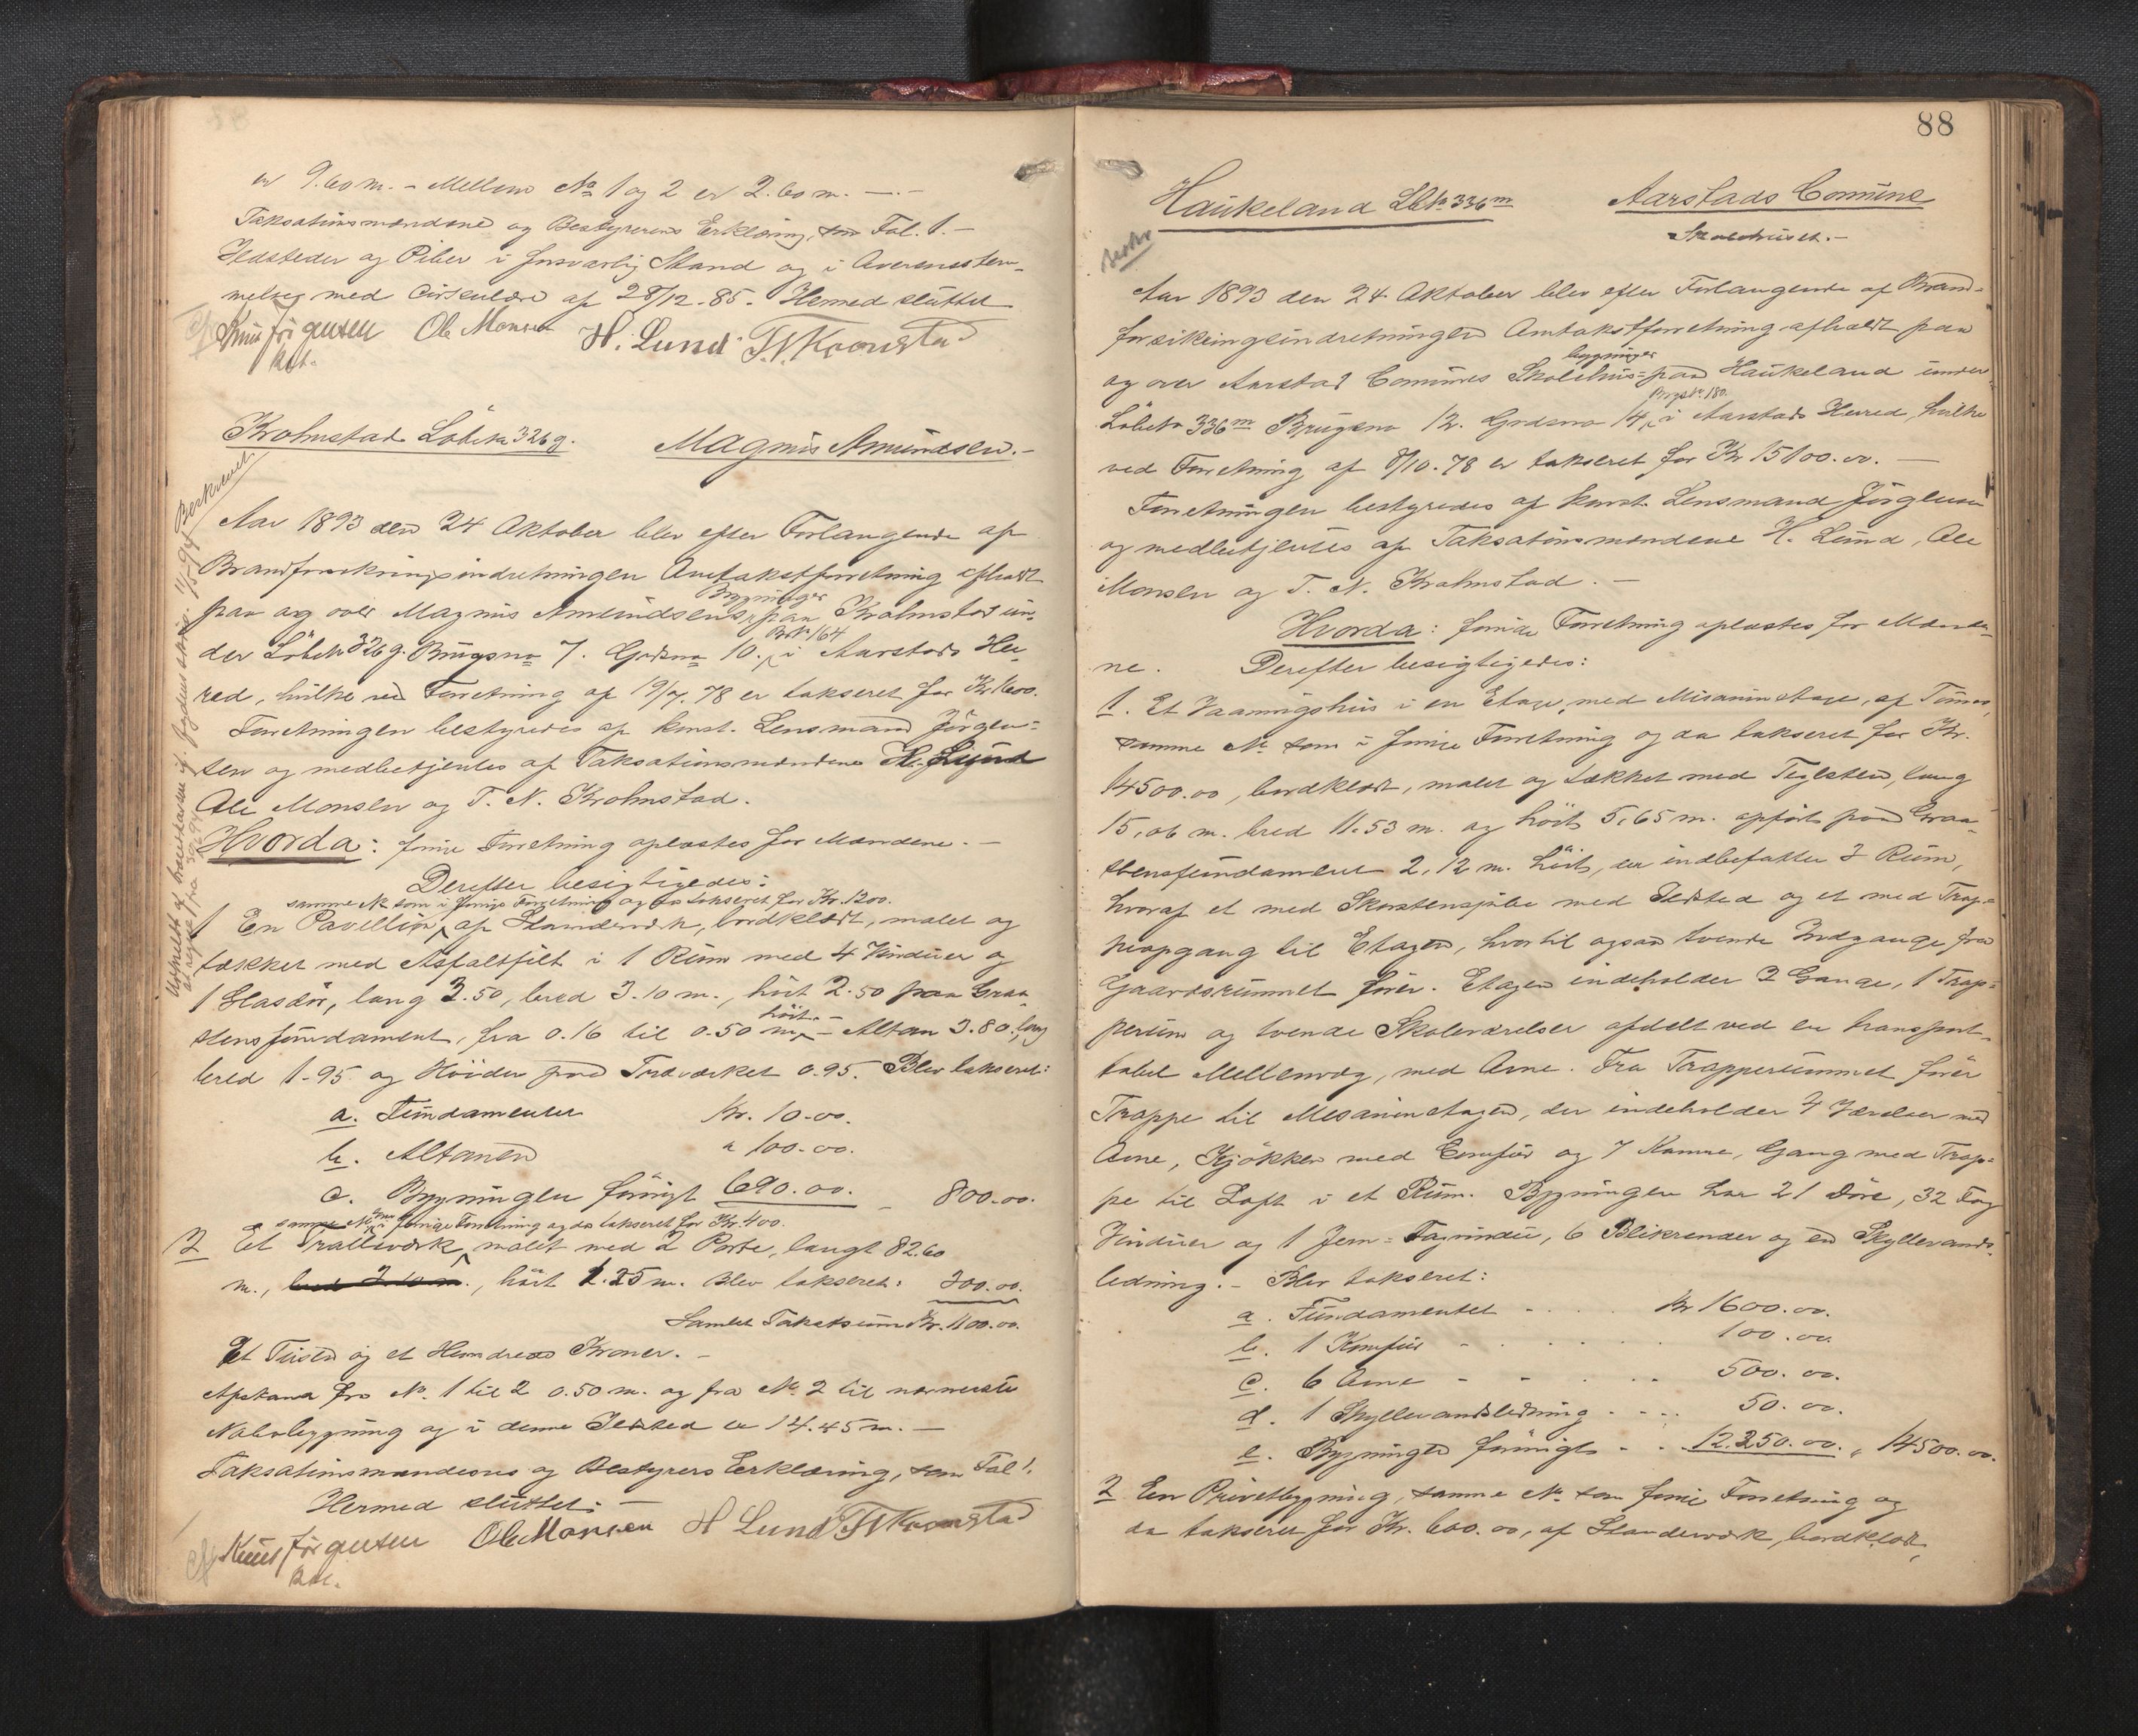 er 9.60 m. – Mellem No 1 og 2 er 2.60 m. —.–
Taksationsmændene og Bestyrerens Erklæring, som Fol. 1. –
Ildsteder og Piber i forsvarlig Stand og i Overensstem-
melse med Cirkulære af 28/12-85. Hermed sluttet
Knut Jørgensen Ole Monsen H. Lund T. N. Kronstad
Kst.
Krohnstad Löbeno 326 g. Magnus Amundsen. –
Beskrevet
Aar 1893 den 24 Oktober blev efter Forlangende af
Brandforsikringsindretningen Omtakstforretning afholdt
Bygninger
paa og over Magnus Amundsens paa Krohnstad un-
BNo 164
der Löbeno 326 g. Brugsno 7. Gardsno 10. i Aarstads Her-
red, hvilke ved Forretning af 19/7. 78 er takseret for Kr. 1600.
Forretningen bestyredes af konst. Lensmand Jörgen-
sen og medbetjentes af Taksationsmændene H. Lund
Ole Monsen og T. N. Krohnstad.
Hvorda: forrige Forretning oplæstes for Mændene. –
Derefter besigtigedes:
samme No som i forrige Forretning og da takseret for Kr. 1200.
1 En Pavellion, af Standerværk, bordklædt, malet og
tækket med Asfaltfilt i 1 Rum med 4 Vinduer og
1 Glasdör, lang 3.50, bred 3.10 m., höit 2.50 paa Graa-
höit –
stensfundament, fra 0.16 til 0.50 m, – Altan 3.80, lang
bred 1-95 og Höiden paa Træværket 0.95. Blev takseret:
a. Fundamentet Kr. 10.00.
b. Altanen " 100.00.
c. Bygningen forövrigt 690.00. – 800.00.
samme No som i forrige Forretning og da takseret for Kr. 400.
2 Et Trallværk, malet med 2 Porte, langt 82.60
m., höit 1.25 m. Blev takseret: 300.00.
Samlet Takstsum Kr. 1100.00.
Et Tusen og et Hundrede Kroner. –
Afstand fra No. 1 til 2 0.50 m. og fra No 2 til nærmeste
Nabobygning og i denne Ildsted er 14.45 m. –
Taksationsmændenes og Bestyrers Erklæring, som Fol 1.
Hermed sluttet: –
Knut Jörgensen Ole Monsen H Lund T N Kronstad
Kst.
88
Haukeland LbNo 336 m Aarstads Comune
Skolehuset. –
Aar 1893 den 24. Oktober blev efter Forlangende af Brand-
forsikringsindretningen Omtakstforretning afholdt paa
bygninger
og over Aarstad Comunes Skolehus= paa Haukeland under
BygNo 180.
Löbeno 336 m Brugsno 12. Gardsno 14, i Aarstads Herred, hvilke
ved Forretning af 8/10-78 er takseret for Kr 15100.00. —
Forretningen bestyredes af konst. Lensmand Jörgensen
og medbetjentes af Taksationsmændene H. Lund, Ole
Monsen og T. N. Krohnstad. –
Hvorda: forrige Forretning oplæstes for Mænde-
ne. Derefter besigtigedes:
1. Et Vaaningshus i en Etage, med Misaninetage, af Tömmer,
samme No som i forrige Forretning og da takseret for Kr.
14500.00, bordklædt, malet og tækket med Teglsten, lang
15,06 m. bred 11.53 m. og höit 5,65 m. opfört paa Graa-
stensfundament 2,12 m. höit, der indbefatter 3 Rum,
hvoraf et med Skorstenspibe med Ildsted og et med Trap-
peopgang til Etagen, hvortil ogsaa tvende Indgange fra
Gaardsrummet förer. Etagen indeholder 2 Gange, 1 Trap-
perum og tvende Skoleværelser afdelt ved en transpor-
tabel Mellemvæg, med Ovne. Fra Trapperummet förer
Trappe til Mesaninetagen, der indeholder 4 Værelser med
Ovne, Kjökken med Comfur og 7 Kamre, Gang med Trap-
pe til Loft i et Rum. Bygningen har 21 Döre, 32 Fag
Vinduer og 1 Jern-Tagvindu, 6 Blikrender og en Skyllevands-
ledning. – Blev takseret:
a. Fundamentet - . . . Kr 1600.00.
b. 1 Komfur - . . . 100.00
c. 6 Ovne - - . . . 500.00.
d. 1 Skyllevandsledning - - - 50.00.
e. Bygningen forövrigt - - . 12.250.00. " 14500.00.
2 En Privetbygning, samme No som forrige Forretning og
da takseret for Kr. 600.00, af Standerværk, bordklædt,